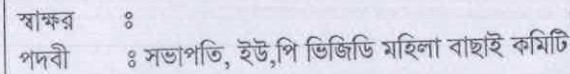 স্বাক্ষর ঃ
পদবী ঃ সভাপতি, ইউ,পি ভিজিডি মহিলা বাছাই কমিটি